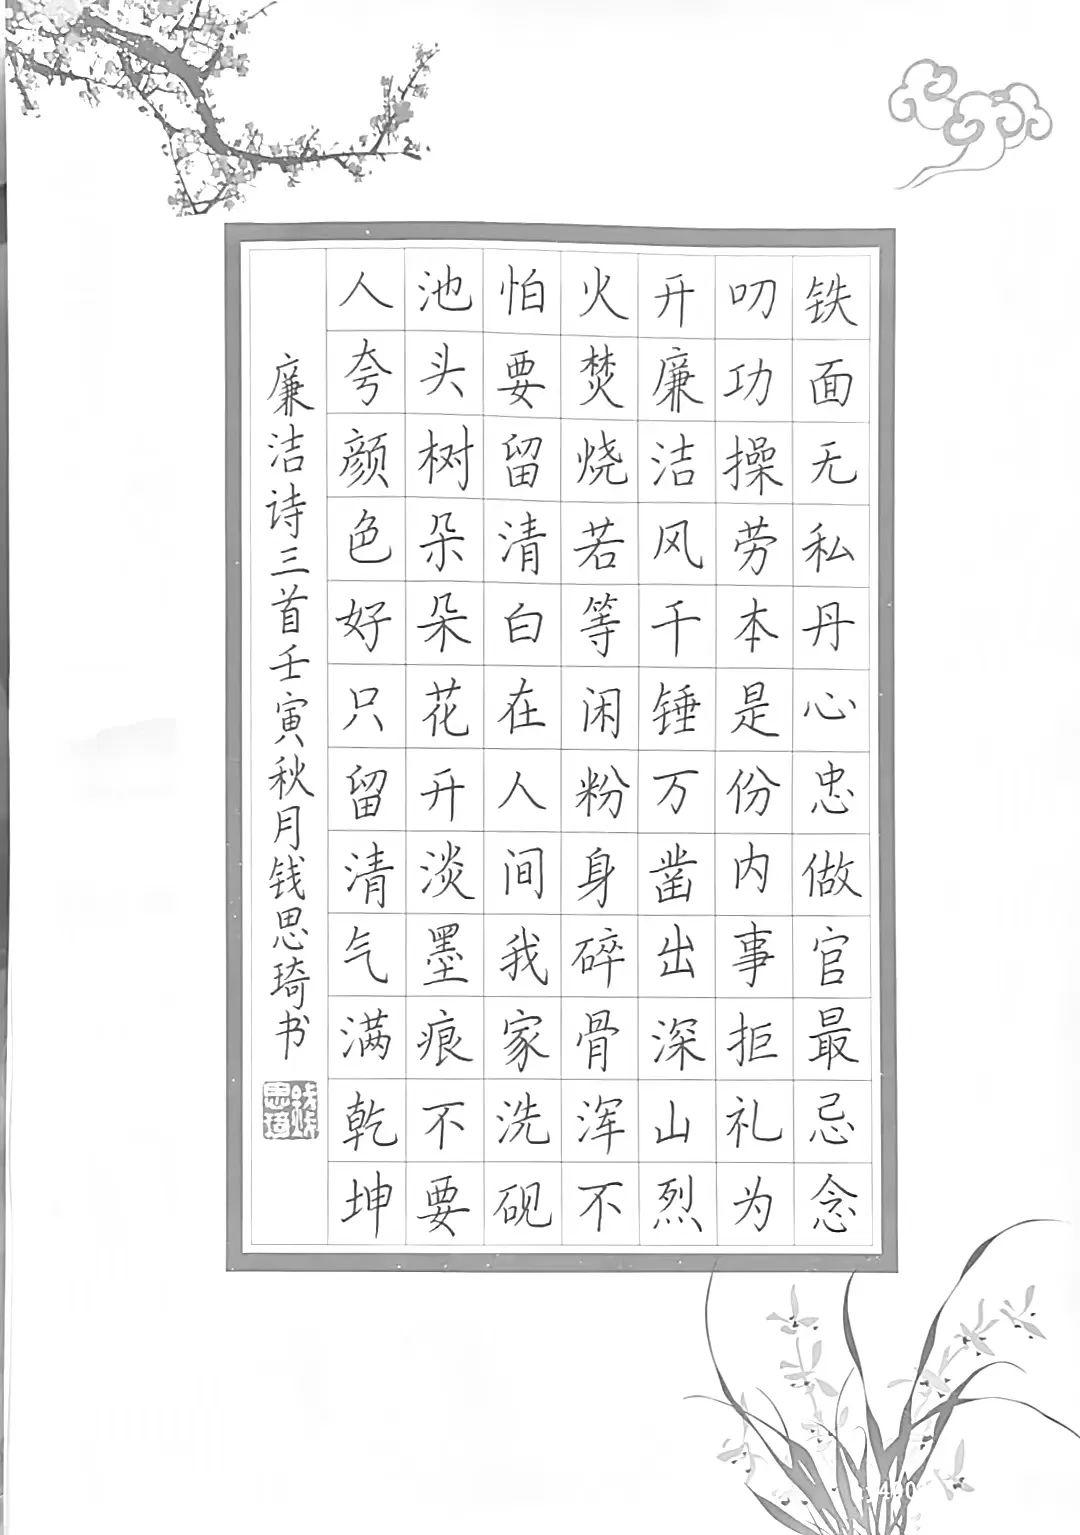 铁面无私丹心忠做官最忌念
叨功操劳本是份内事拒礼为
开廉洁风千锤万凿出深山烈
火焚烧若等闲粉身碎骨浑不
怕要留清白在人间我家洗砚
池头树朵朵花开淡墨痕不要
人夸颜色好只留清气满乾坤
廉洁诗三首壬寅秋月钱思琦书